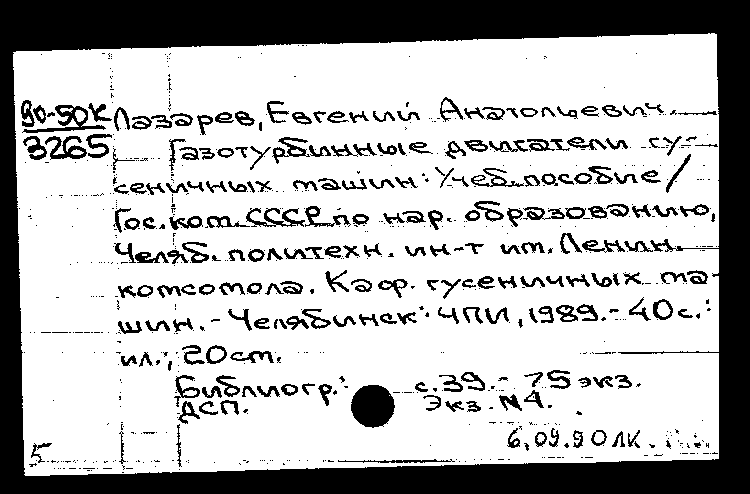 90-50К
3265
Лазарев, Евгений Анатольевич.
Газотурбинные двигатели гу-
сеничных машин: Учеб. пособие /
Гос. ком. СССР по нар. образованию,
Челяб. политехн. ин-т им. Ленин.
комсомола. Каф. гусеничных ма-
шин. - Челябинск: ЧПИ, 1989. - 40 с.:
ил.; 20 см.
Библиогр.: с. 39. - 75 экз.
ДСП. Экз. N4.
6,09.90 ЛК.
5